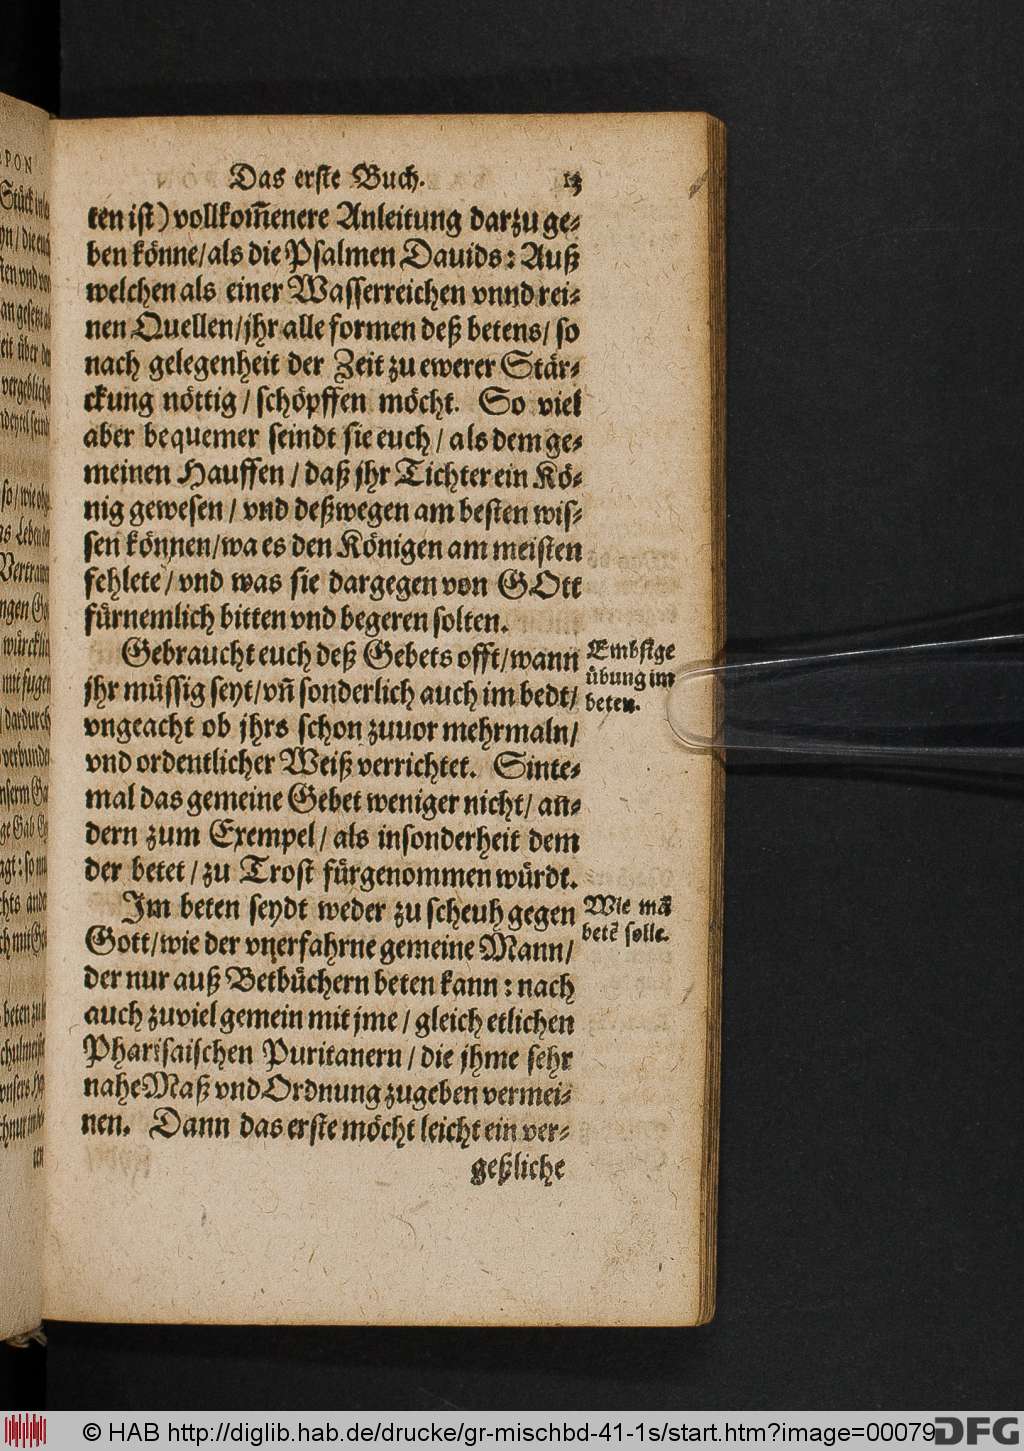 Das erste Buch. 13
ten ist) vollkom̃enere Anleitung darzu ge-
ben könne/ als die Psalmen Dauids: Auß
welchen als einer Wasserreichen vnnd rei-
nen Quellen/ jhr alle formen deß betens/ so
nach gelegenheit der Zeit zu ewerer Stär-
ckung nöttig/ schöpffen möcht. So viel
aber bequemer seindt sie euch/ als dem ge-
meinen Hauffen/ daß jhr Tichter ein Kö-
nig gewesen/ vnd deßwegen am besten wis-
sen können/ wa es den Königen am meisten
fehlete/ vnd was sie dargegen von GOtt
fürnemlich bitten vnd begeren solten.
Gebraucht euch deß Gebets offt/ wann
jhr müssig seyt/ vñ sonderlich auch im bedt/
vngeacht ob jhrs schon zuuor mehrmaln/
vnd ordentlicher Weiß verrichtet. Sinte-
mal das gemeine Gebet weniger nicht/ añ-
dern zum Exempel/ als insonderheit dem
der betet/ zu Trost fürgenommen würdt.
Im beten seydt weder zu scheuh gegen
Gott/ wie der vnerfahrne gemeine Mann/
der nur auß Betbüchern beten kann: nach
auch zuviel gemein mit jme/ gleich etlichen
Pharisaischen Puritanern/ die jhme sehr
nahe Maß vnd Ordnung zugeben vermei-
nen. Dann das erste möcht leicht ein ver-
geßliche
Embsige
übung im
beten.
Wie mã
betẽ solle.
© HAB http://diglib.hab.de/drucke/gr-mischbd-41-1s/start.htm?image=00079
DFG